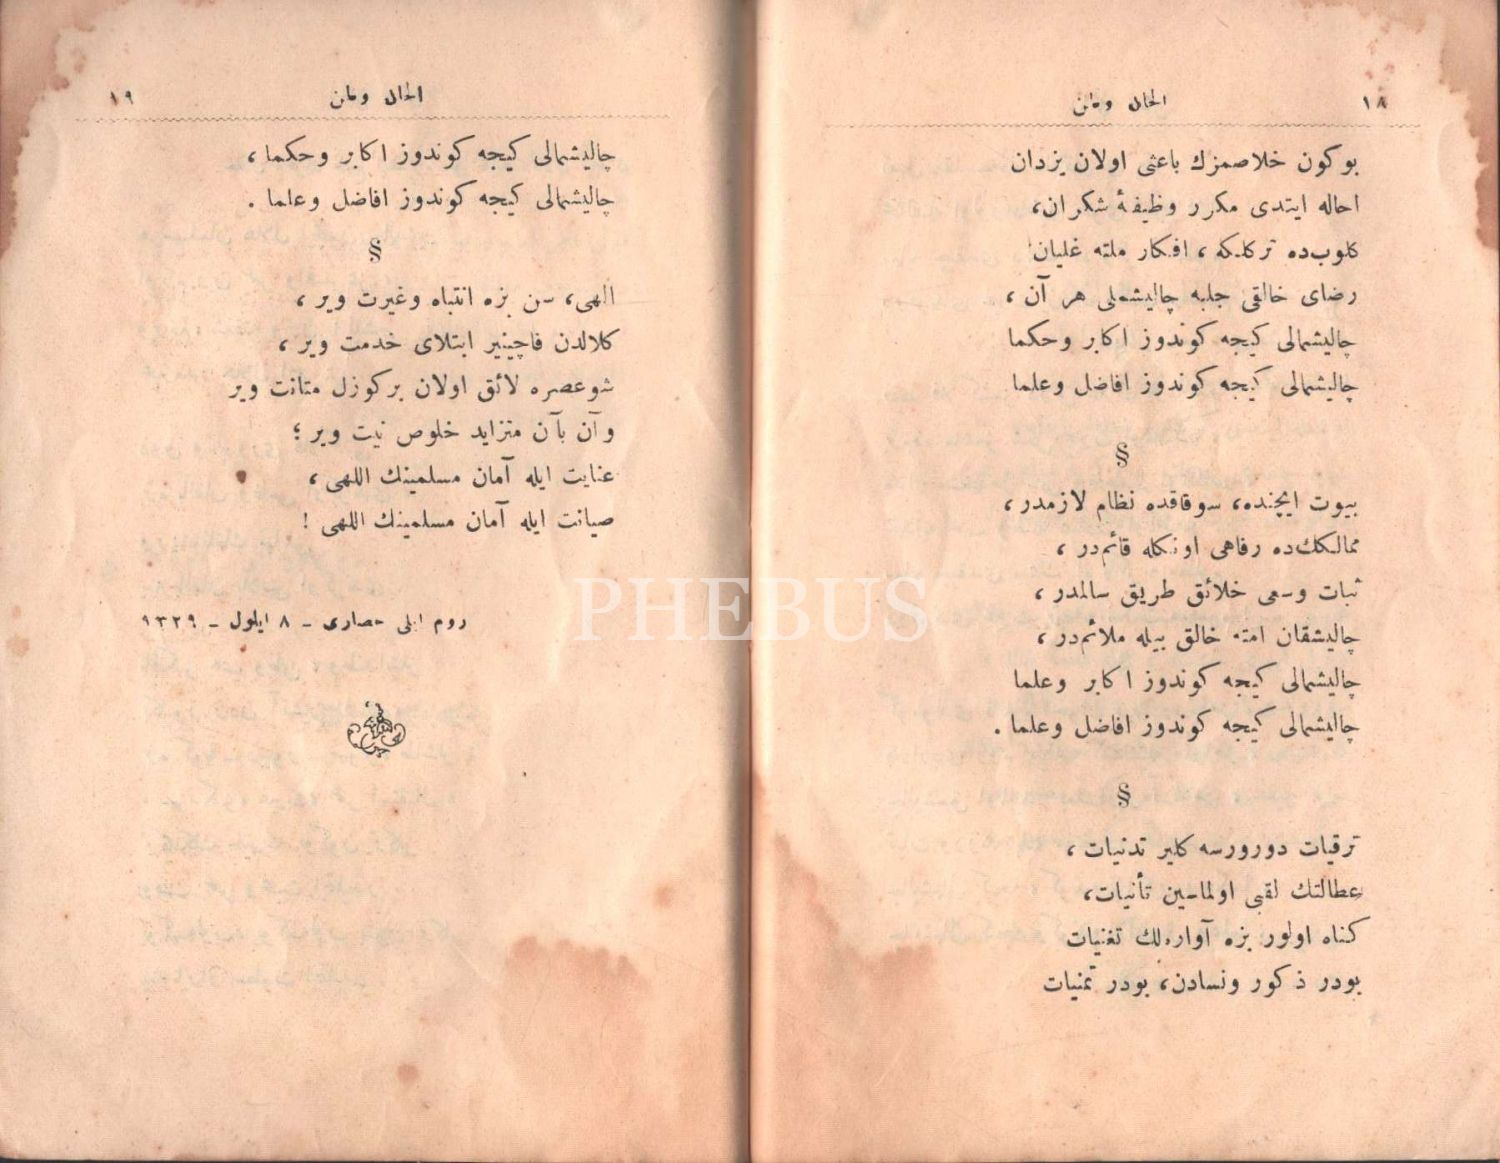 ١٨
الحال وطن
بوكون خلاصمزك باعثى اولان يزدان
احاله ايتدى مكرر وظيفهٔ شكران،
كلوب‌ده تركلكه، افكار ملته غليان
رضاى خالقى جلبه چاليشملى هر آن،
چاليشمالى كيجه كوندوز اكابر وحكما
چاليشمالى كيجه كوندوز افاضل وعلما
§
بيوت ايچنده، سوقاقده نظام لازمدر،
ممالكك‌ده رفاهى اونكله قائم‌در،
ثبات وسعى خلائق طريق سالمدر،
چاليشقان امته خالق بيله ملائم‌در،
چاليشمالى كيجه كوندوز اكابر وعلما
چاليشمالى كيجه كوندوز افاضل وعلما.
§
ترقيات دورورسه كلير تدنيات،
عطالتك لقبى اولماسين تأنيات،
كناه اولور بزه آواره‌لك تغنيات
بودر ذكور ونسادن، بودر تمنيات
١٩
الحال وطن
چاليشمالى كيجه كوندوز اكابر وحكما،
چاليشمالى كيجه كوندوز افاضل وعلما.
§
الهى، سن بزه انتباه وغيرت وير،
كلالدن قاچينير ابتلاى خدمت وير،
شوعصره لائق اولان بركوزل متانت وير
وآن بآن متزايد خلوص نيت وير؛
عنايت ايله آمان مسلمينك اللهى،
صيانت ايله آمان مسلمينك اللهى!
روم ايلى حصارى ـ ٨ ايلول ـ ١٣٢٩
PHEBUS